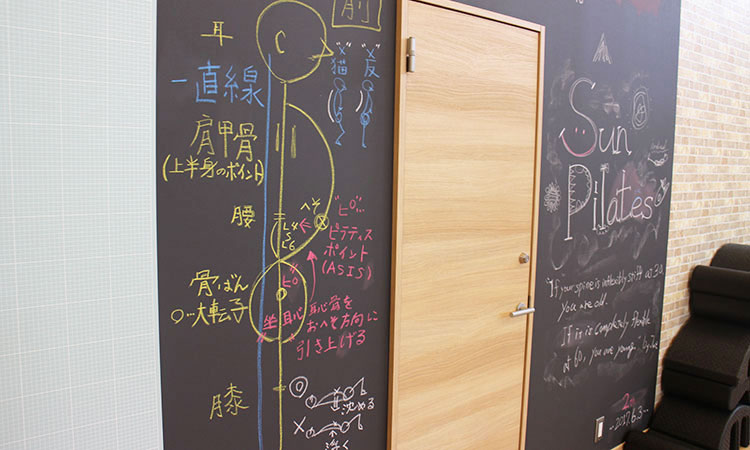 前
耳
"×" "×"
猫 反
一直線
肩甲骨
(上半身のポイント)
腰
へそ
L4
5
L6
"ピ"...
ピラティス
ポイント
(ASIS)
骨ばん
○…大転子
"ピ"
坐 恥
恥骨を
おへそ方向に
引き上げる
膝
◎
沈める
×
浮く
Sun
Pilates
"If your spine is inflexibly stiff at 30,
You are old.
If it is completely flexible
at 60, you are young." by
2017.6.3